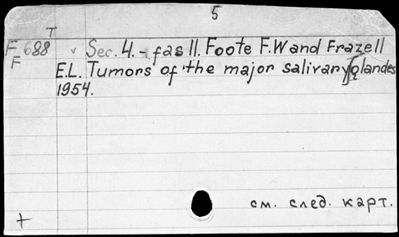 5
T
F 688 v Sec. 4. - fas II. Foote F.W and Frazell
F E.L. Tumors of the major salivary glandes
1954.
см. след. карт.
+